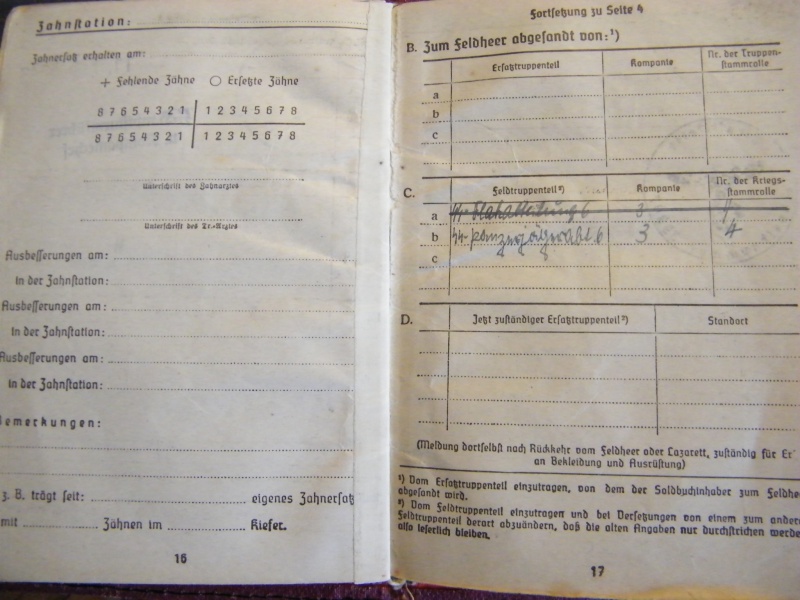 Zahnstation:
Zahnersatz erhalten am:
+ Fehlende Zähne ○ Ersetzte Zähne
8 7 6 5 4 3 2 1 | 1 2 3 4 5 6 7 8
8 7 6 5 4 3 2 1 | 1 2 3 4 5 6 7 8
Unterschrift des Zahnarztes
Unterschrift des Tr.-Arztes
Ausbesserungen am:
in der Zahnstation:
Ausbesserungen am:
in der Zahnstation:
Ausbesserungen am:
in der Zahnstation:
Bemerkungen:
z. B. trägt seit: eigenes Zahnersatz
mit Zähnen im Kiefer.
16
Fortsetzung zu Seite 4
B. Zum Feldheer abgesandt von:¹)
Ersatztruppenteil Kompanie Nr. der Truppen-
stammrolle
a
b
c
C. Feldtruppenteil²) Kompanie Nr. der Kriegs-
stammrolle
a 3
b SS-Panzerjägerabt 6 3 4
c
D. Jetzt zuständiger Ersatztruppenteil²) Standort
(Meldung dortselbst nach Rückkehr vom Feldheer oder Lazarett, zuständig für Er
an Bekleidung und Ausrüstung)
¹) Vom Ersatztruppenteil einzutragen, von dem der Soldbuchinhaber zum Feldhe
abgesandt wird.
²) Vom Feldtruppenteil einzutragen und bei Versetzungen von einem zum andere
Feldtruppenteil derart abzuändern, daß die alten Angaben nur durchstrichen werde
also leserlich bleiben.
17